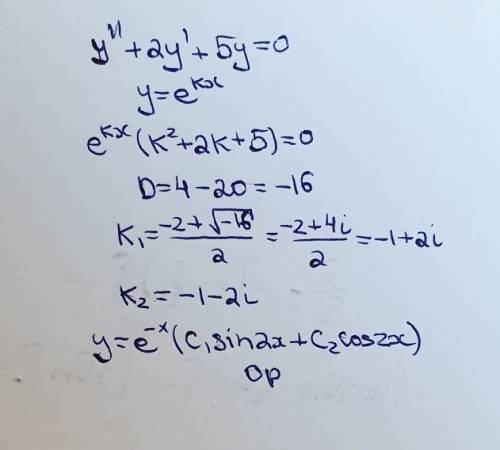 y''+2y'+5y=0
y=e^{kx}
e^{kx}(k²+2k+5)=0
D=4-20=-16
K₁=\frac{-2+√-16}{2}=\frac{-2+4i}{2}=-1+2i
K₂=-1-2i
y=e^{-x}(C₁sin2x+C₂cos2x)
ОР